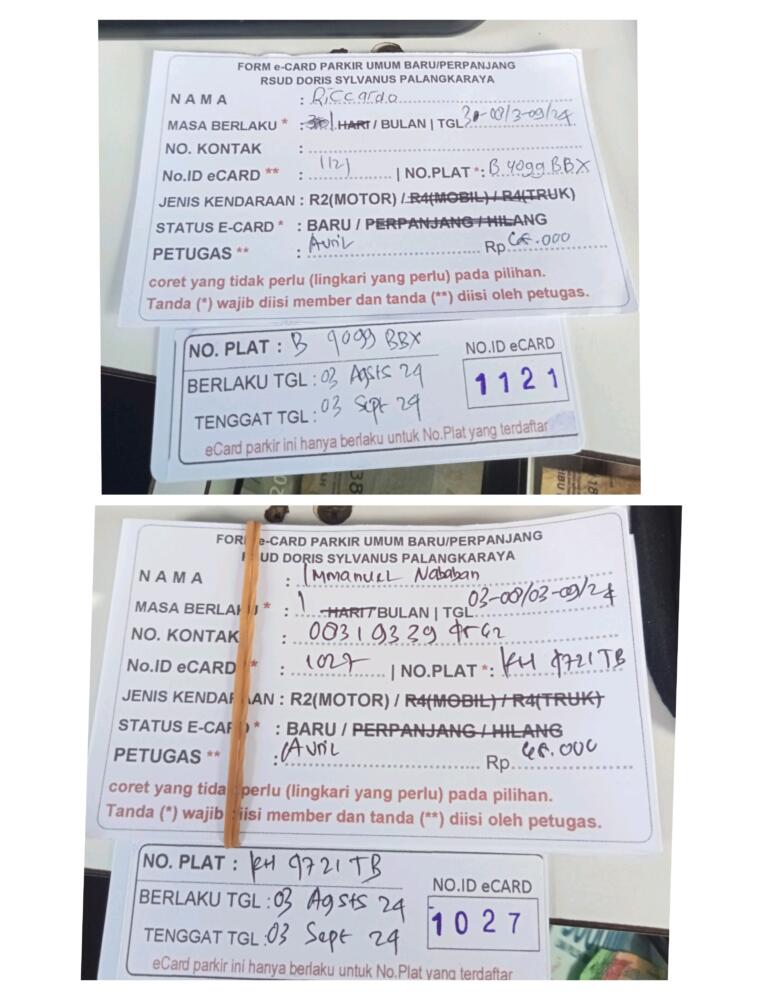 FORM e-CARD PARKIR UMUM BARU/PERPANJANG
RSUD DORIS SYLVANUS PALANGKARAYA
NAMA : Riccardo
MASA BERLAKU * : HARI / BULAN | TGL 3-08/3-09/24
NO. KONTAK :
No.ID eCARD ** : 1121 | NO.PLAT *: B 4099 BBX
JENIS KENDARAAN : R2(MOTOR) / R4(MOBIL) / R4(TRUK)
STATUS E-CARD * : BARU / PERPANJANG / HILANG
PETUGAS ** : Avril Rp .000
coret yang tidak perlu (lingkari yang perlu) pada pilihan.
Tanda (*) wajib diisi member dan tanda (**) diisi oleh petugas.
NO. PLAT : B 4099 BBX
BERLAKU TGL : 03 Agsts 24
TENGGAT TGL : 03 Sept 24
NO.ID eCARD
1121
eCard parkir ini hanya berlaku untuk No.Plat yang terdaftar
FORM e-CARD PARKIR UMUM BARU/PERPANJANG
UD DORIS SYLVANUS PALANGKARAYA
NAMA : Immanuel Nababan
MASA BERLAKU * : 1 HARI / BULAN | TGL 03-08/03-09/24
NO. KONTAK :
No.ID eCARD ** : 1027 | NO.PLAT *: KH 4721 TB
JENIS KENDARAAN : R2(MOTOR) / R4(MOBIL) / R4(TRUK)
STATUS E-CARD * : BARU / PERPANJANG / HILANG
PETUGAS ** : Avril Rp .000
coret yang tidak perlu (lingkari yang perlu) pada pilihan.
Tanda (*) wajib diisi member dan tanda (**) diisi oleh petugas.
NO. PLAT : KH 4721 TB
BERLAKU TGL : 03 Agsts 24
TENGGAT TGL : 03 Sept 24
NO.ID eCARD
1027
eCard parkir ini hanya berlaku untuk No.Plat yang terdaftar